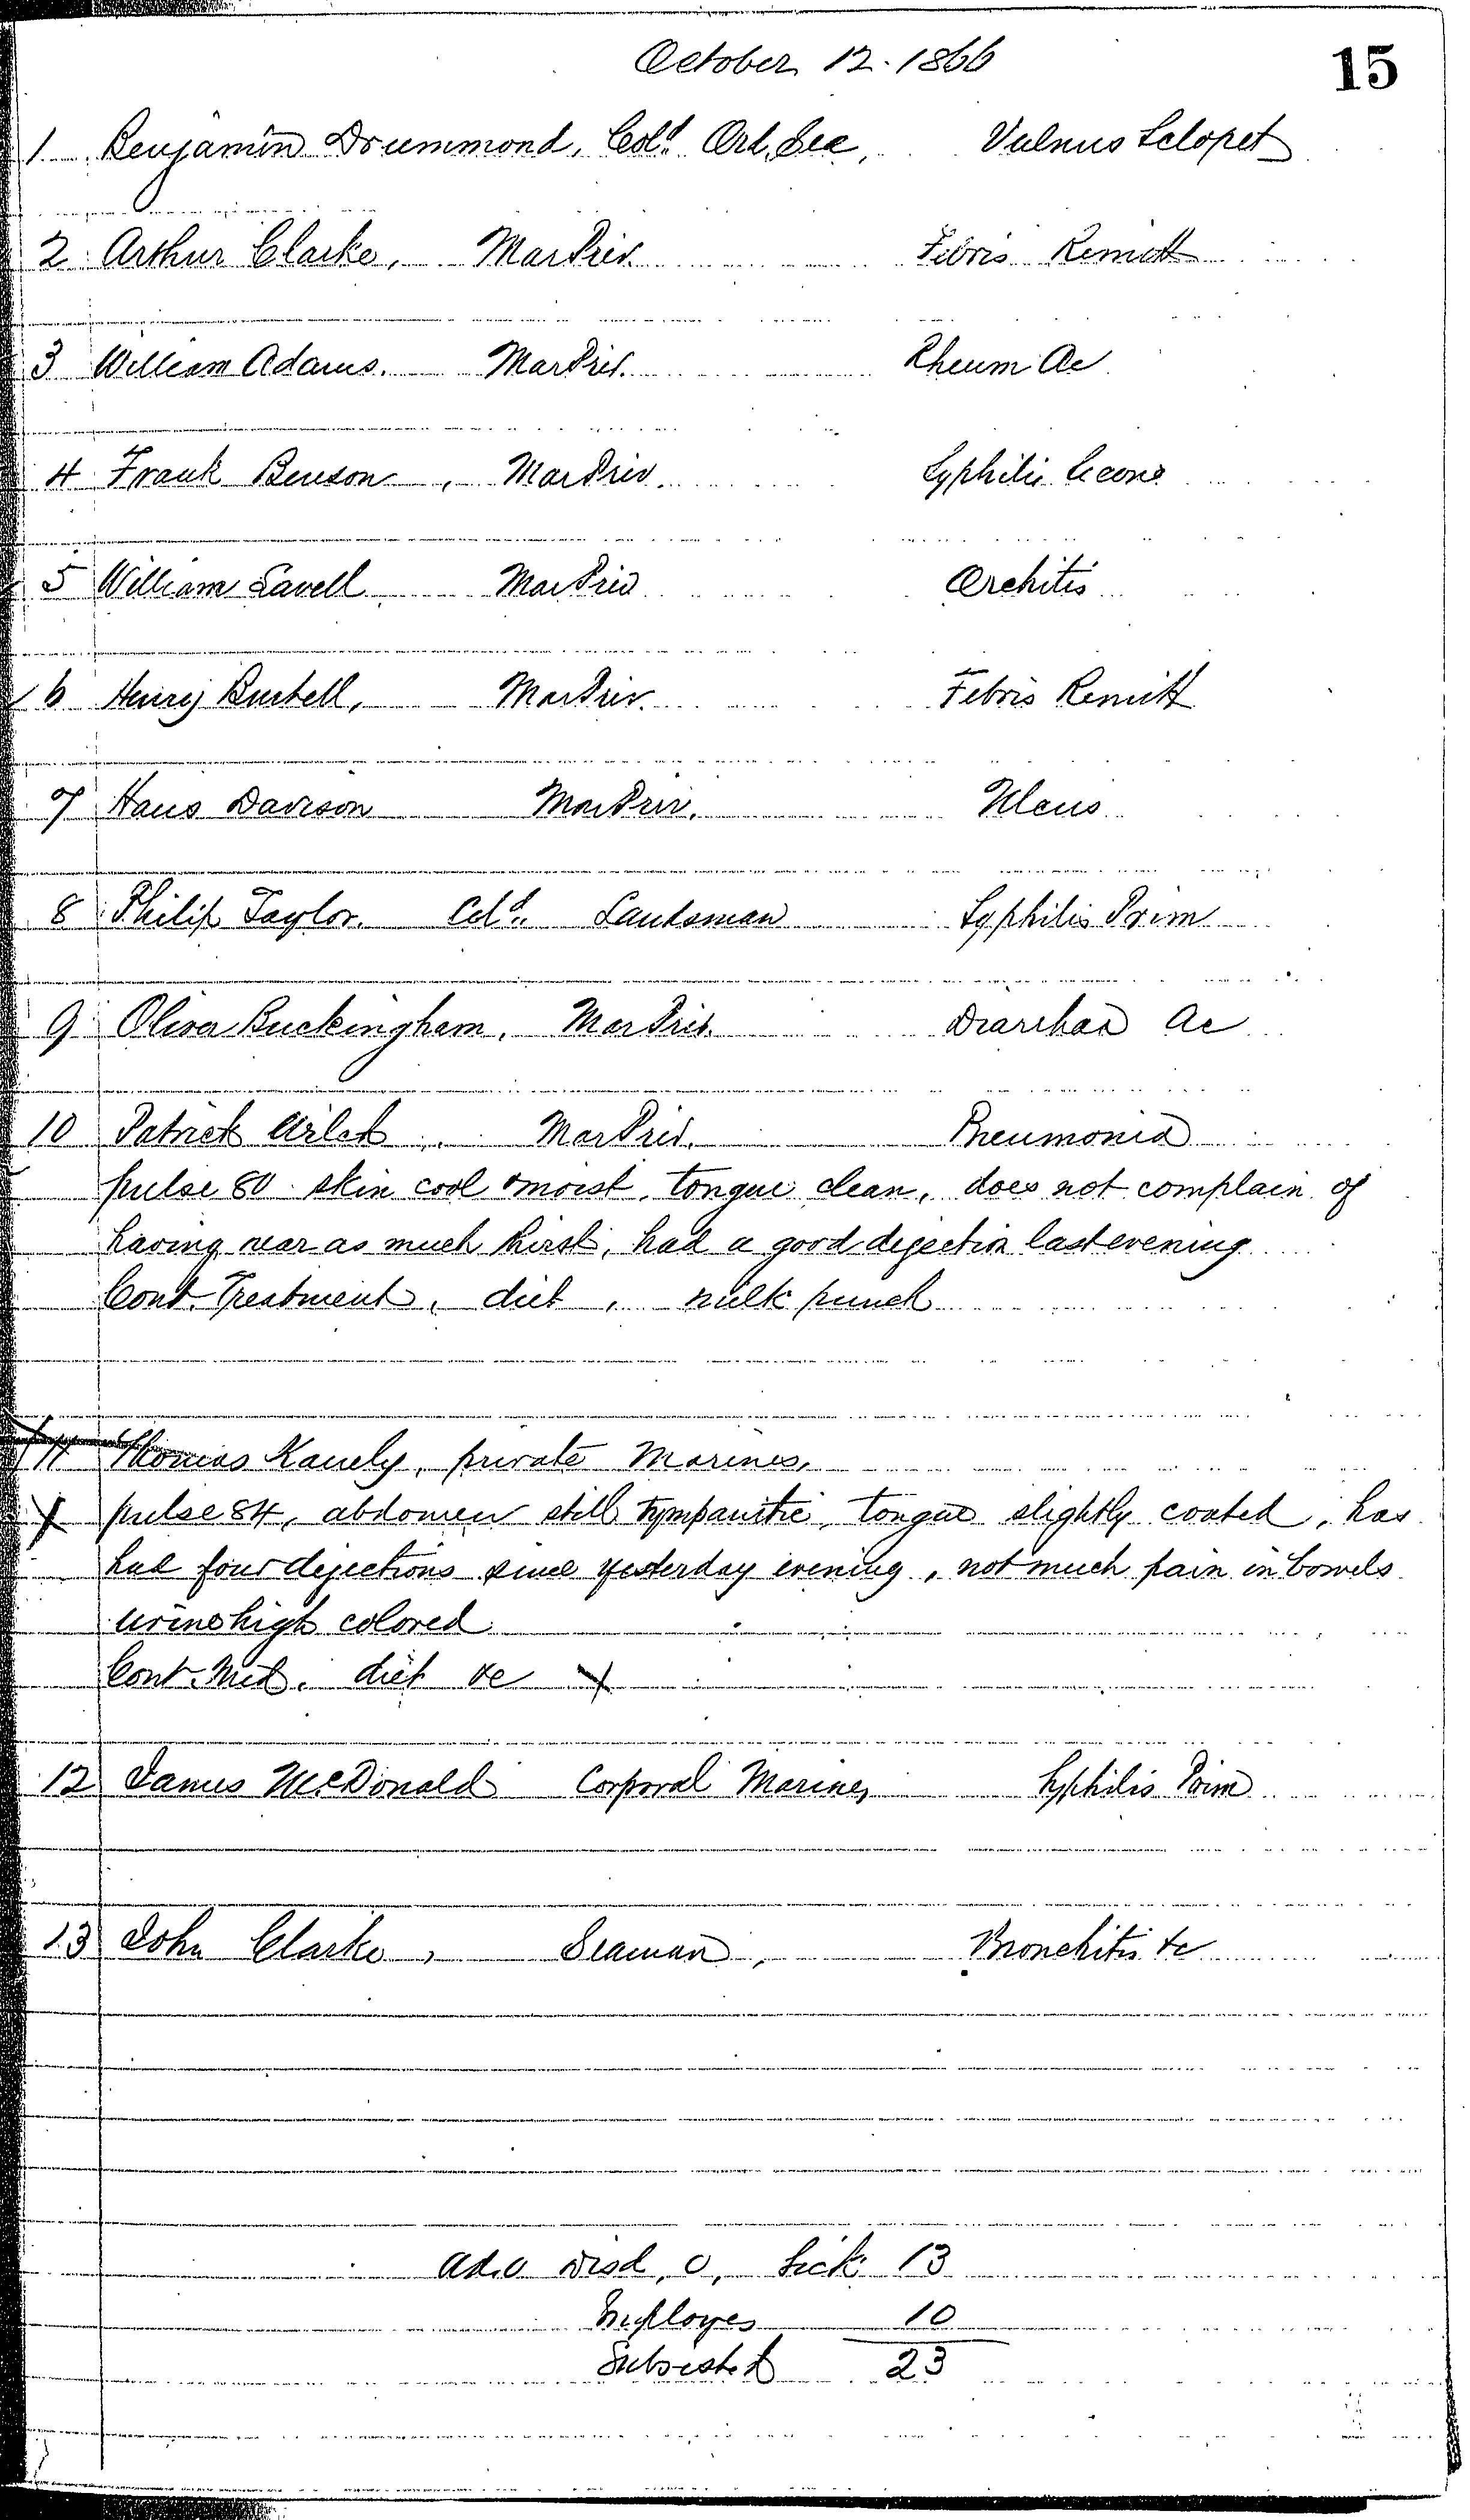 October 12. 1866
15
1 Benjamin Drummond, Cold. Ord. Sea, Vulnus Sclopet
2 Arthur Clarke, Mar Priv. Febris Remitt
3 William Adams. Mar Priv. Rheum Ac
4 Frank Benson, Mar Priv. Syphilis
5 William Lavell Mar Priv Orchitis
6 Henry Burbell, Mar Priv. Febris Remitt
7 Hans Davison Mar Priv. Ulcus
8 Philip Taylor. Cold. Landsman Syphilis Prim
9 Oliver Buckingham, Mar Priv. Diarrhœa Ac
10 Patrick Mar Priv. Pneumonia
pulse 80 skin cool & moist, tongue clean, does not complain of
having near as much thirst, had a good dejection last evening
Cont. Treatment, diet, milk punch
11 Thomas Kanely, private Marines,
pulse 84, abdomen still tympanitic, tongue slightly coated, has
had four dejections since yesterday evening, not much pain in bowels
urine high colored
Cont. Med. diet &c
12 James McDonald Corporal Marines, Syphilis Prim
13 John Clarke, Seaman, Bronchitis &c
Ad. 0 Disd, 0, Sick 13
Employes 10
Subsisted 23